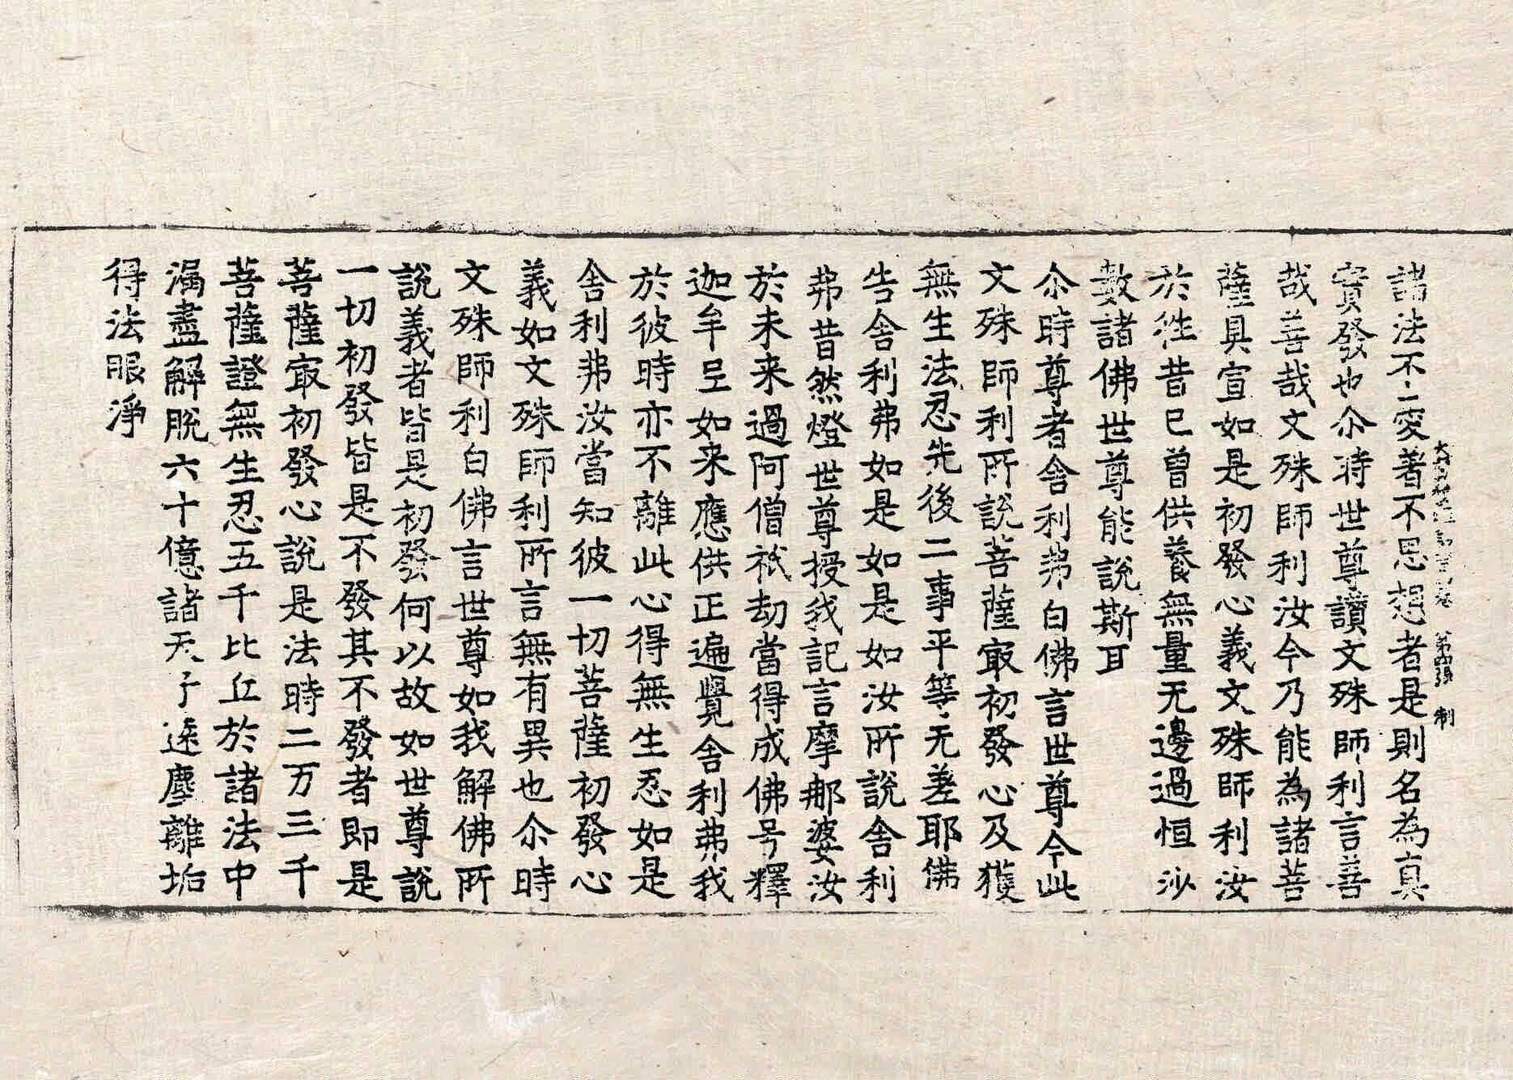 諸法不二受著不思想者是則名為真
實發也尒時世尊讚文殊師利言善
哉善哉文殊師利汝今乃能為諸菩
薩具宣如是初發心義文殊師利汝
於往昔已曾供養無量无邊過恒沙
數諸佛世尊能說斯耳
尒時尊者舍利弗白佛言世尊今此
文殊師利所說菩薩㝡初發心及獲
無生法忍先後二事平等无差耶佛
告舍利弗如是如是如汝所說舍利
弗昔然燈世尊授我記言摩那婆汝
於未来過阿僧祇劫當得成佛号釋
迦牟𡰱如来應供正遍覺舍利弗我
於彼時亦不離此心得無生忍如是
舍利弗汝當知彼一切菩薩初發心
義如文殊師利所言無有異也尒時
文殊師利白佛言世尊如我解佛所
說義者皆是初發何以故如世尊說
一切初發皆是不發其不發者即是
菩薩㝡初發心說是法時二万三千
菩薩證無生忍五千比丘於諸法中
漏盡解脫六十億諸天子遠塵離垢
得法眼淨